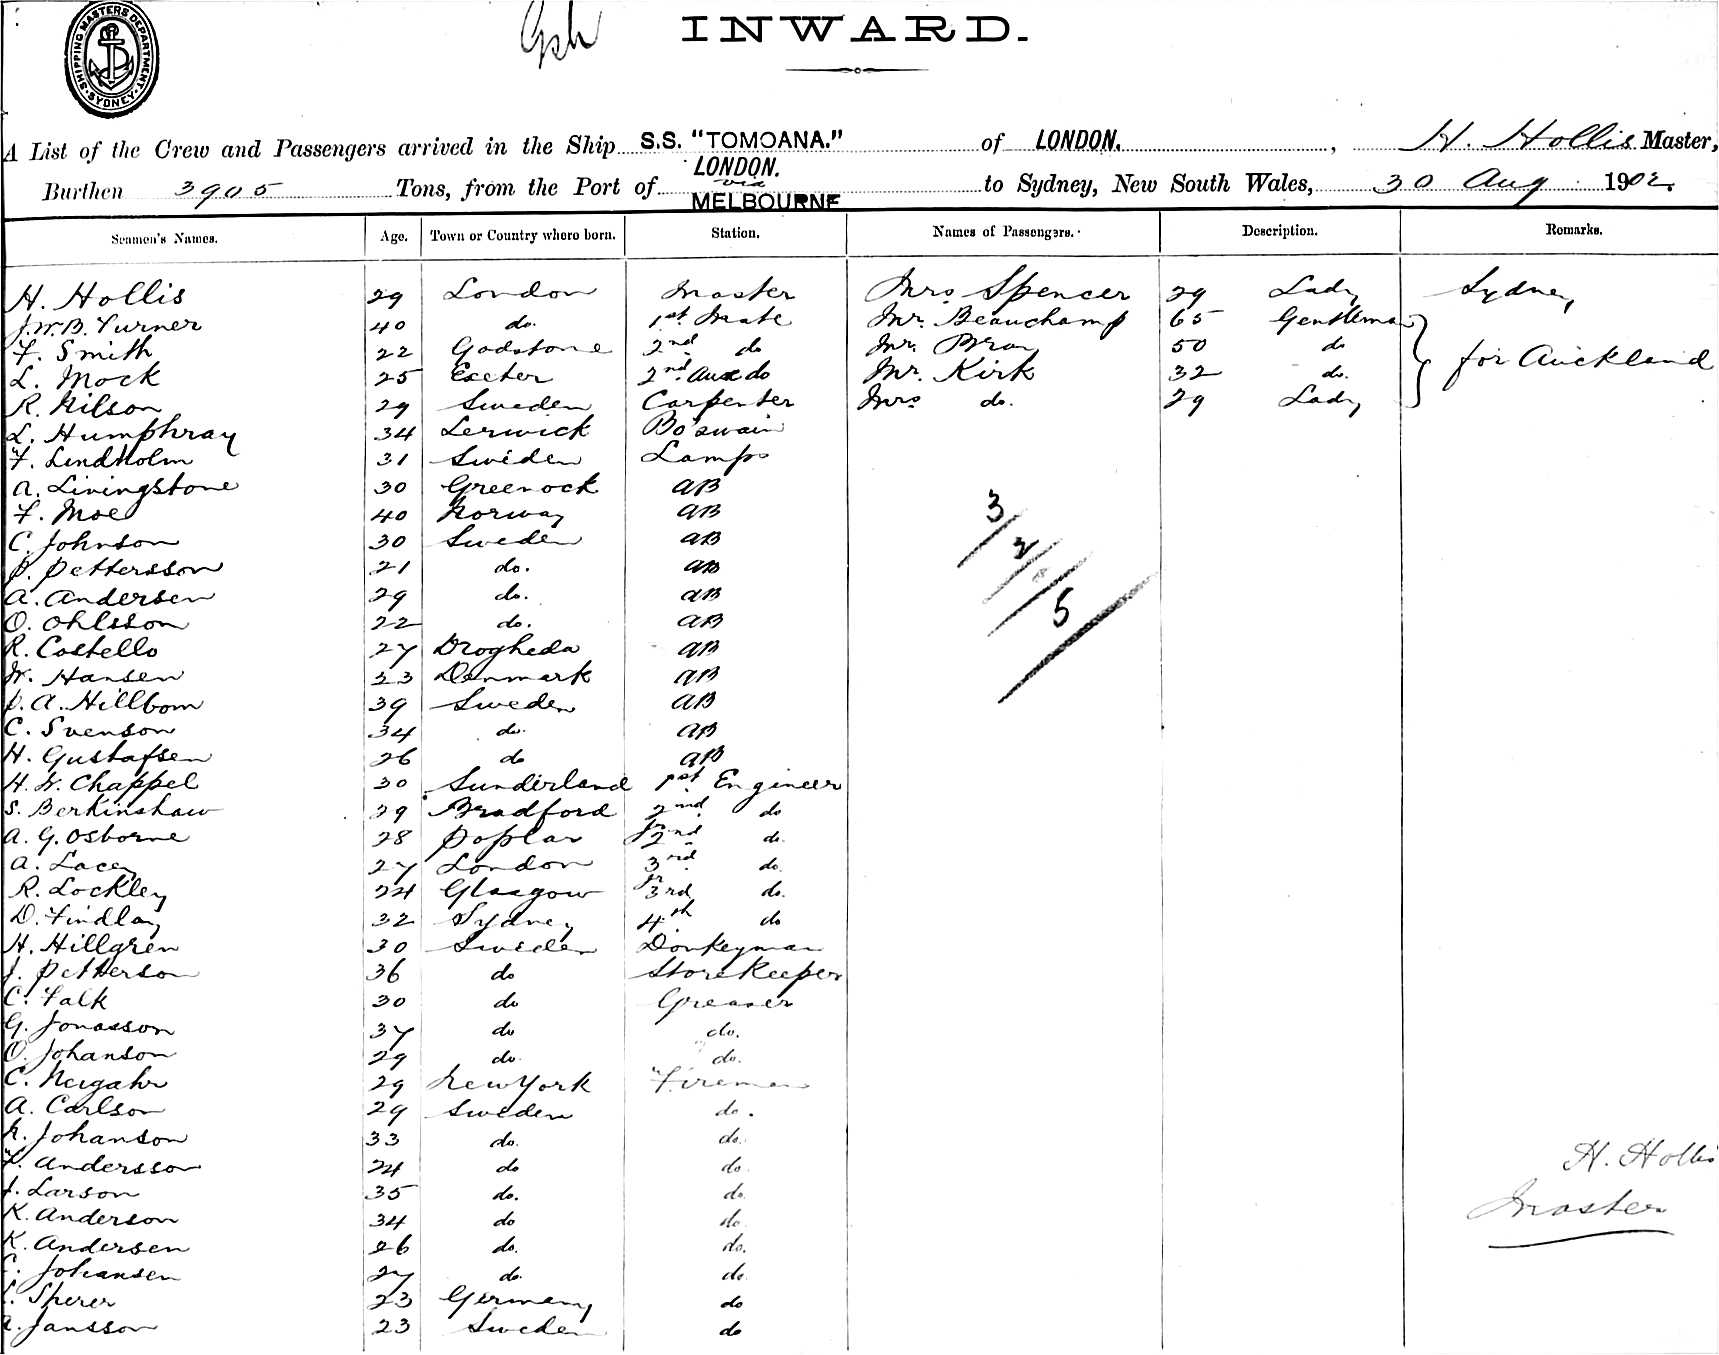 SHIPPING MASTERS DEPARTMENT. SYDNEY
INWARD.
A List of the Crew and Passengers arrived in the Ship S.S. "TOMOANA." of LONDON. , H. Hollis Master,
Burthen 3905 Tons, from the Port of LONDON. via MELBOURNE to Sydney, New South Wales, 30 Aug 1902.
Seamen's Names. Age. Town or Country where born. Station. Names of Passengers. Description. Remarks.
H. Hollis 29 London Master Mrs Spencer 29 Lady Sydney
J.W.B. Turner 40 do. 1st Mate Mr. Beauchamp 65 Gentleman
F. Smith 22 Godstone 2nd do Mr. Bray 50 do for Auckland
L. Mock 25 Exeter 2nd Aux do Mr. Kirk 32 do.
R. Nilson 29 Sweden Carpenter Mrs do. 29 Lady
L. Humphray 34 Lerwick Bo'swain
F. Lindholm 31 Sweden Lamps
A. Livingstone 30 Greenock AB
F. Moe 40 Norway AB
C. Johnson 30 Sweden AB
P. Pettersson 21 do. AB
A. Andersen 29 do. AB
O. Ohlsson 22 do. AB
R. Costello 27 Drogheda AB
W. Hansen 23 Denmark AB
A. Hillbom 39 Sweden AB
C. Svenson 34 do. AB
H. Gustafsen 26 do AB
H. W. Chappel 30 Sunderland 1st Engineer
S. Berkinshaw 29 Bradford 2nd do
A. G. Osborne 28 Poplar Jr 2nd do.
A. Lacey 27 London 3rd do.
R. Lockley 24 Glasgow Jr 3rd do.
D. Findlay 32 Sydney 4th do
H. Hillgren 30 Sweden Donkeyman
J. Petterson 36 do Storekeeper
C. Falk 30 do Greaser
G. Jonasson 37 do do.
O. Johanson 29 do. do.
C. Neigahr 29 New York Fireman
A. Carlson 29 Sweden do.
Johanson 33 do. do.
F. Andersson 24 do do.
J. Larson 35 do. do.
K. Anderson 34 do do.
K. Andersen 26 do. do.
Johansen 27 do. do.
Sherer 23 Germany do
Jansson 23 Sweden do
3/2/5
H. Hollis
Master